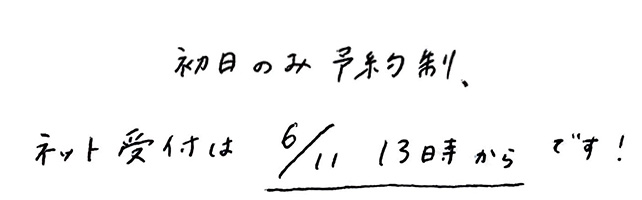 初日のみ予約制、
ネット受付は 6/11 13時から です!